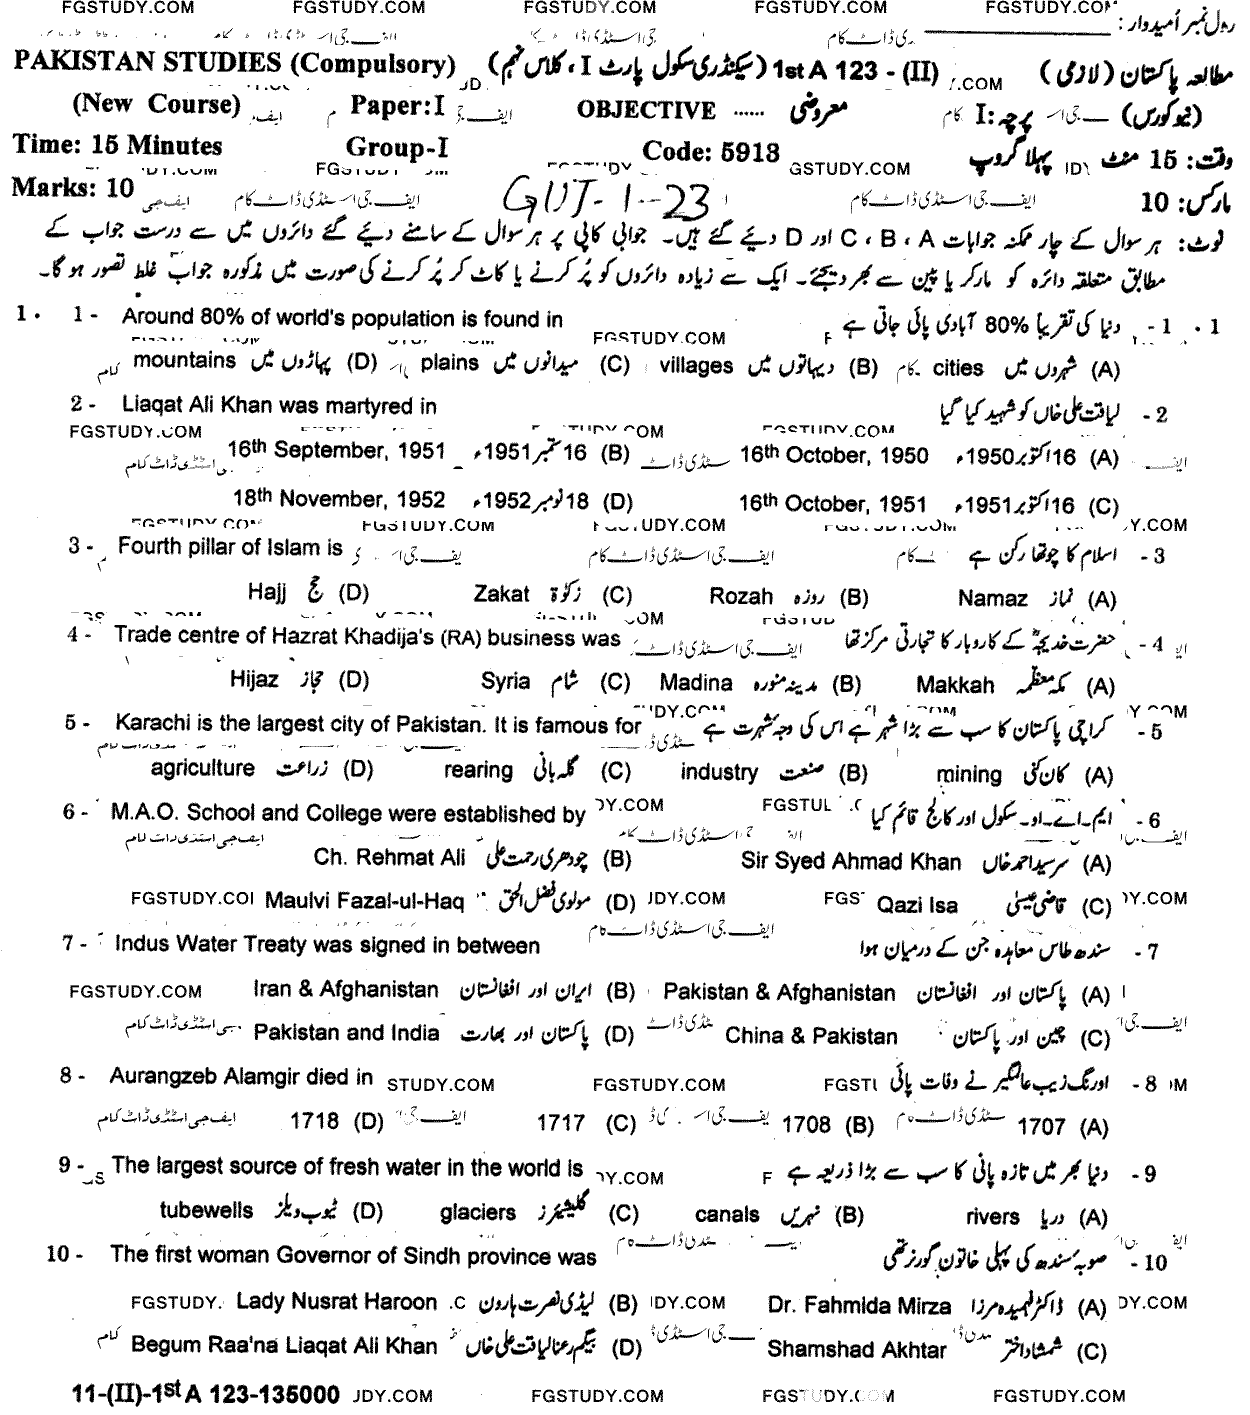 FGSTUDY.COM FGSTUDY.COM FGSTUDY.COM FGSTUDY.COM
رول نمبر اُمیدوار :
PAKISTAN STUDIES (Compulsory) 1st A 123 - (II) (سیکنڈری سکول پارٹ I ، کلاس نہم) مطالعہ پاکستان (لازمی)
(New Course) Paper:I OBJECTIVE ...... معروضی پرچہ: I (نیوکورس)
Time: 15 Minutes Group-I Code: 5918 وقت: 15 منٹ پہلا گروپ
FGSTUDY.COM
Marks: 10 GUJ-1-23 مارکس: 10
نوٹ: ہر سوال کے چار ممکنہ جوابات A ، B ، C اور D دیئے گئے ہیں۔ جوابی کاپی پر ہر سوال کے سامنے دیئے گئے دائروں میں سے درست جواب کے
مطابق متعلقہ دائرہ کو مارکر یا پین سے بھر دیجئے۔ ایک سے زیادہ دائروں کو پُر کرنے یا کاٹ کر پُر کرنے کی صورت میں مذکورہ جواب غلط تصور ہو گا۔
1. 1 - Around 80% of world's population is found in دنیا کی تقریباً 80% آبادی پائی جاتی ہے 1 - 1 .
FGSTUDY.COM
(A) شہروں میں cities (B) دیہاتوں میں villages (C) میدانوں میں plains (D) پہاڑوں میں mountains
2 - Liaqat Ali Khan was martyred in لیاقت علی خاں کو شہید کیا گیا 2 -
FGSTUDY.COM
(A) 16 اکتوبر 1950ء 16th October, 1950 (B) 16 ستمبر 1951ء 16th September, 1951
(C) 16 اکتوبر 1951ء 16th October, 1951 (D) 18 نومبر 1952ء 18th November, 1952
3 - Fourth pillar of Islam is اسلام کا چوتھا رکن ہے 3 -
(A) نماز Namaz (B) روزہ Rozah (C) زکوٰۃ Zakat (D) حج Hajj
4 - Trade centre of Hazrat Khadija's (RA) business was حضرت خدیجہؓ کے کاروبار کا تجارتی مرکز تھا 4 -
(A) مکہ معظمہ Makkah (B) مدینہ منورہ Madina (C) شام Syria (D) حجاز Hijaz
5 - Karachi is the largest city of Pakistan. It is famous for کراچی پاکستان کا سب سے بڑا شہر ہے اس کی وجہ شہرت ہے 5 -
(A) کان کنی mining (B) صنعت industry (C) گلہ بانی rearing (D) زراعت agriculture
6 - M.A.O. School and College were established by ایم۔اے۔او۔سکول اور کالج قائم کیا 6 -
(A) سرسید احمد خاں Sir Syed Ahmad Khan (B) چودھری رحمت علی Ch. Rehmat Ali
(C) قاضی عیسیٰ Qazi Isa (D) مولوی فضل الحق Maulvi Fazal-ul-Haq
7 - Indus Water Treaty was signed in between سندھ طاس معاہدہ جن کے درمیان ہوا 7 -
(A) پاکستان اور افغانستان Pakistan & Afghanistan (B) ایران اور افغانستان Iran & Afghanistan FGSTUDY.COM
(C) چین اور پاکستان China & Pakistan (D) پاکستان اور بھارت Pakistan and India
8 - Aurangzeb Alamgir died in اورنگ زیب عالمگیر نے وفات پائی 8 -
FGSTUDY.COM
(A) 1707 (B) 1708 (C) 1717 (D) 1718
9 - The largest source of fresh water in the world is دنیا بھر میں تازہ پانی کا سب سے بڑا ذریعہ ہے 9 -
(A) دریا rivers (B) نہریں canals (C) گلیشیئرز glaciers (D) ٹیوب ویلز tubewells
10 - The first woman Governor of Sindh province was صوبہ سندھ کی پہلی خاتون گورنر تھی 10 -
(A) ڈاکٹر فہمیدہ مرزا Dr. Fahmida Mirza (B) لیڈی نصرت ہارون Lady Nusrat Haroon
(C) شمشاد اختر Shamshad Akhtar (D) بیگم رعنا لیاقت علی خاں Begum Raa'na Liaqat Ali Khan
11-(II)-1st A 123-135000 FGSTUDY.COM FGSTUDY.COM FGSTUDY.COM